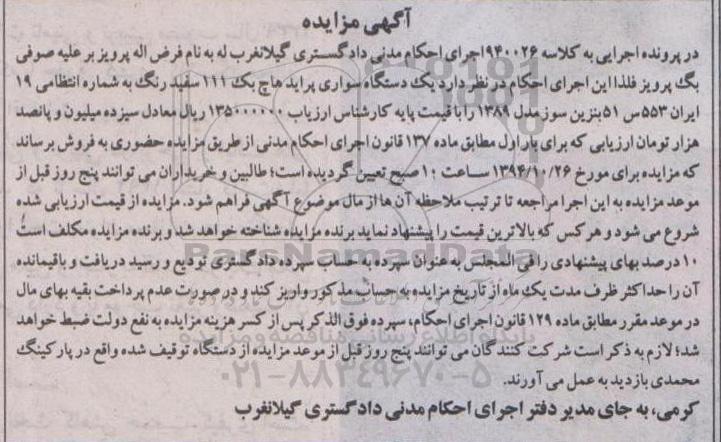 آگهی مزایده
در پرونده اجرایی به کلاسه ۹۴۰۰۲۶اجرای احکام مدنی دادگستری گیلانغرب له به نام فرض اله پرویز بر علیه صوفی
بگ پرویز فلذا این اجرای احکام در نظر دارد یک دستگاه سواری پراید هاچ بک ۱۱۱ سفید رنگ به شماره انتظامی ۱۹
ایران ۵۵۳س ۵۱بنزین سوز مدل ۱۳۸۹ را با قیمت پایه کارشناس ارزیاب ۱۳۵۰۰۰۰۰۰ ریال معادل سیزده میلیون و پانصد
هزار تومان ارزیابی که برای بار اول مطابق ماده ۱۳۷ قانون اجرای احکام مدنی از طریق مزایده حضوری به فروش برساند
که مزایده برای مورخ ۱۳۹۴/۱۰/۲۶ ساعت ۱۰صبح تعیین گردیده است؛ طالبین و خریداران می توانند پنج روز قبل از
موعد مزایده به این اجرا مراجعه تا ترتیب ملاحظه آن ها از مال موضوع آگهی فراهم شود. مزایده از قیمت ارزیابی شده
شروع می شود و هر کس که بالاترین قیمت را پیشنهاد نماید برنده مزایده شناخته خواهد شد و برنده مزایده مکلف است
۱۰درصد بهای پیشنهادی را فی المجلس به عنوان سپرده به حساب سپرده دادگستری تودیع و رسید دریافت و باقیمانده
آن را حداکثر ظرف مدت یک ماه از تاریخ مزایده به حساب مذکور واریز کند و در صورت عدم پرداخت بقیه بهای مال
در موعد مقرر مطابق ماده ۱۲۹ قانون اجرای احکام، سپرده فوق الذکر پس از کسر هزینه مزایده به نفع دولت ضبط خواهد
شد؛ لازم به ذکر است شرکت کنندگان می توانند پنج روز قبل از موعد مزایده از دستگاه توقیف شده واقع در پارکینگ
محمدی بازدید به عمل می آورند.
کرمی، به جای مدیر دفتر اجرای احکام مدنی دادگستری گیلانغرب
ParsNamadData
پایگاه اطلاع رسانی مناقصه و مزایده
۰۲۱-۸۸۳۴۹۶۷۰-۵